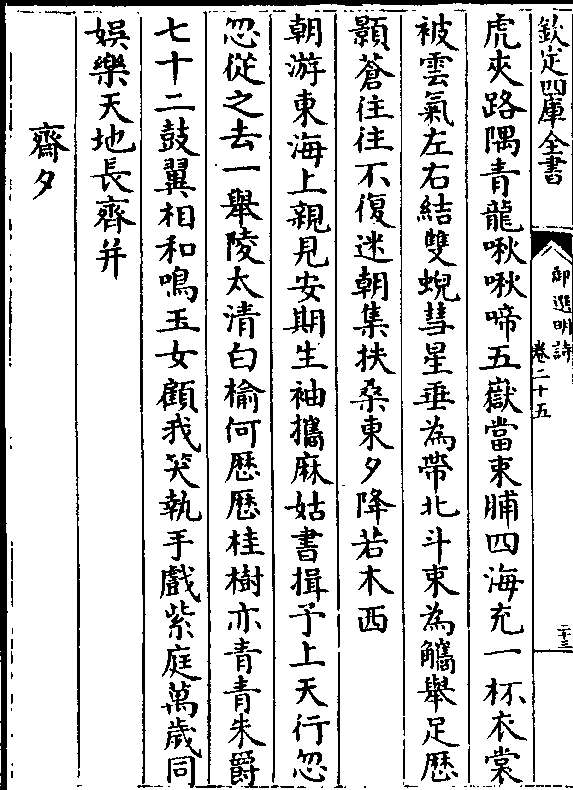 欽定四庫全書
御選明詩
卷二十五
二十三
虎夾路隅青龍啾啾啼五嶽當束脯四海充一杯衣裳
被雲氣左右結雙蜺彗星垂為帶北斗束為觿舉足歴
顥蒼往往不復迷朝集扶桑東夕降若木西
朝游東海上親見安期生袖攜麻姑書揖予上天行忽
忽從之去一舉陵太清白榆何歴歴桂樹亦青青朱爵
七十二鼓翼相和鳴玉女顧我笑執手戲紫庭萬歲同
娛樂天地長齊并
齋夕